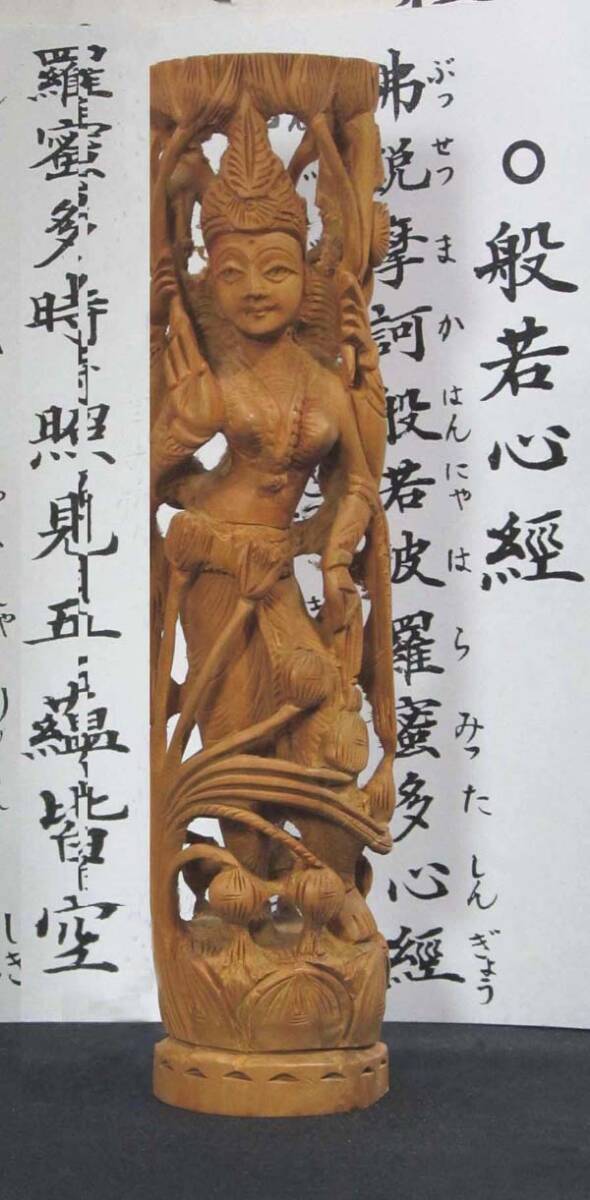 ○般若心經
佛説摩訶般若波羅蜜多心經
ぶつせつまかはんにゃはらみったしんぎょう
羅蜜多時照見五蘊皆空